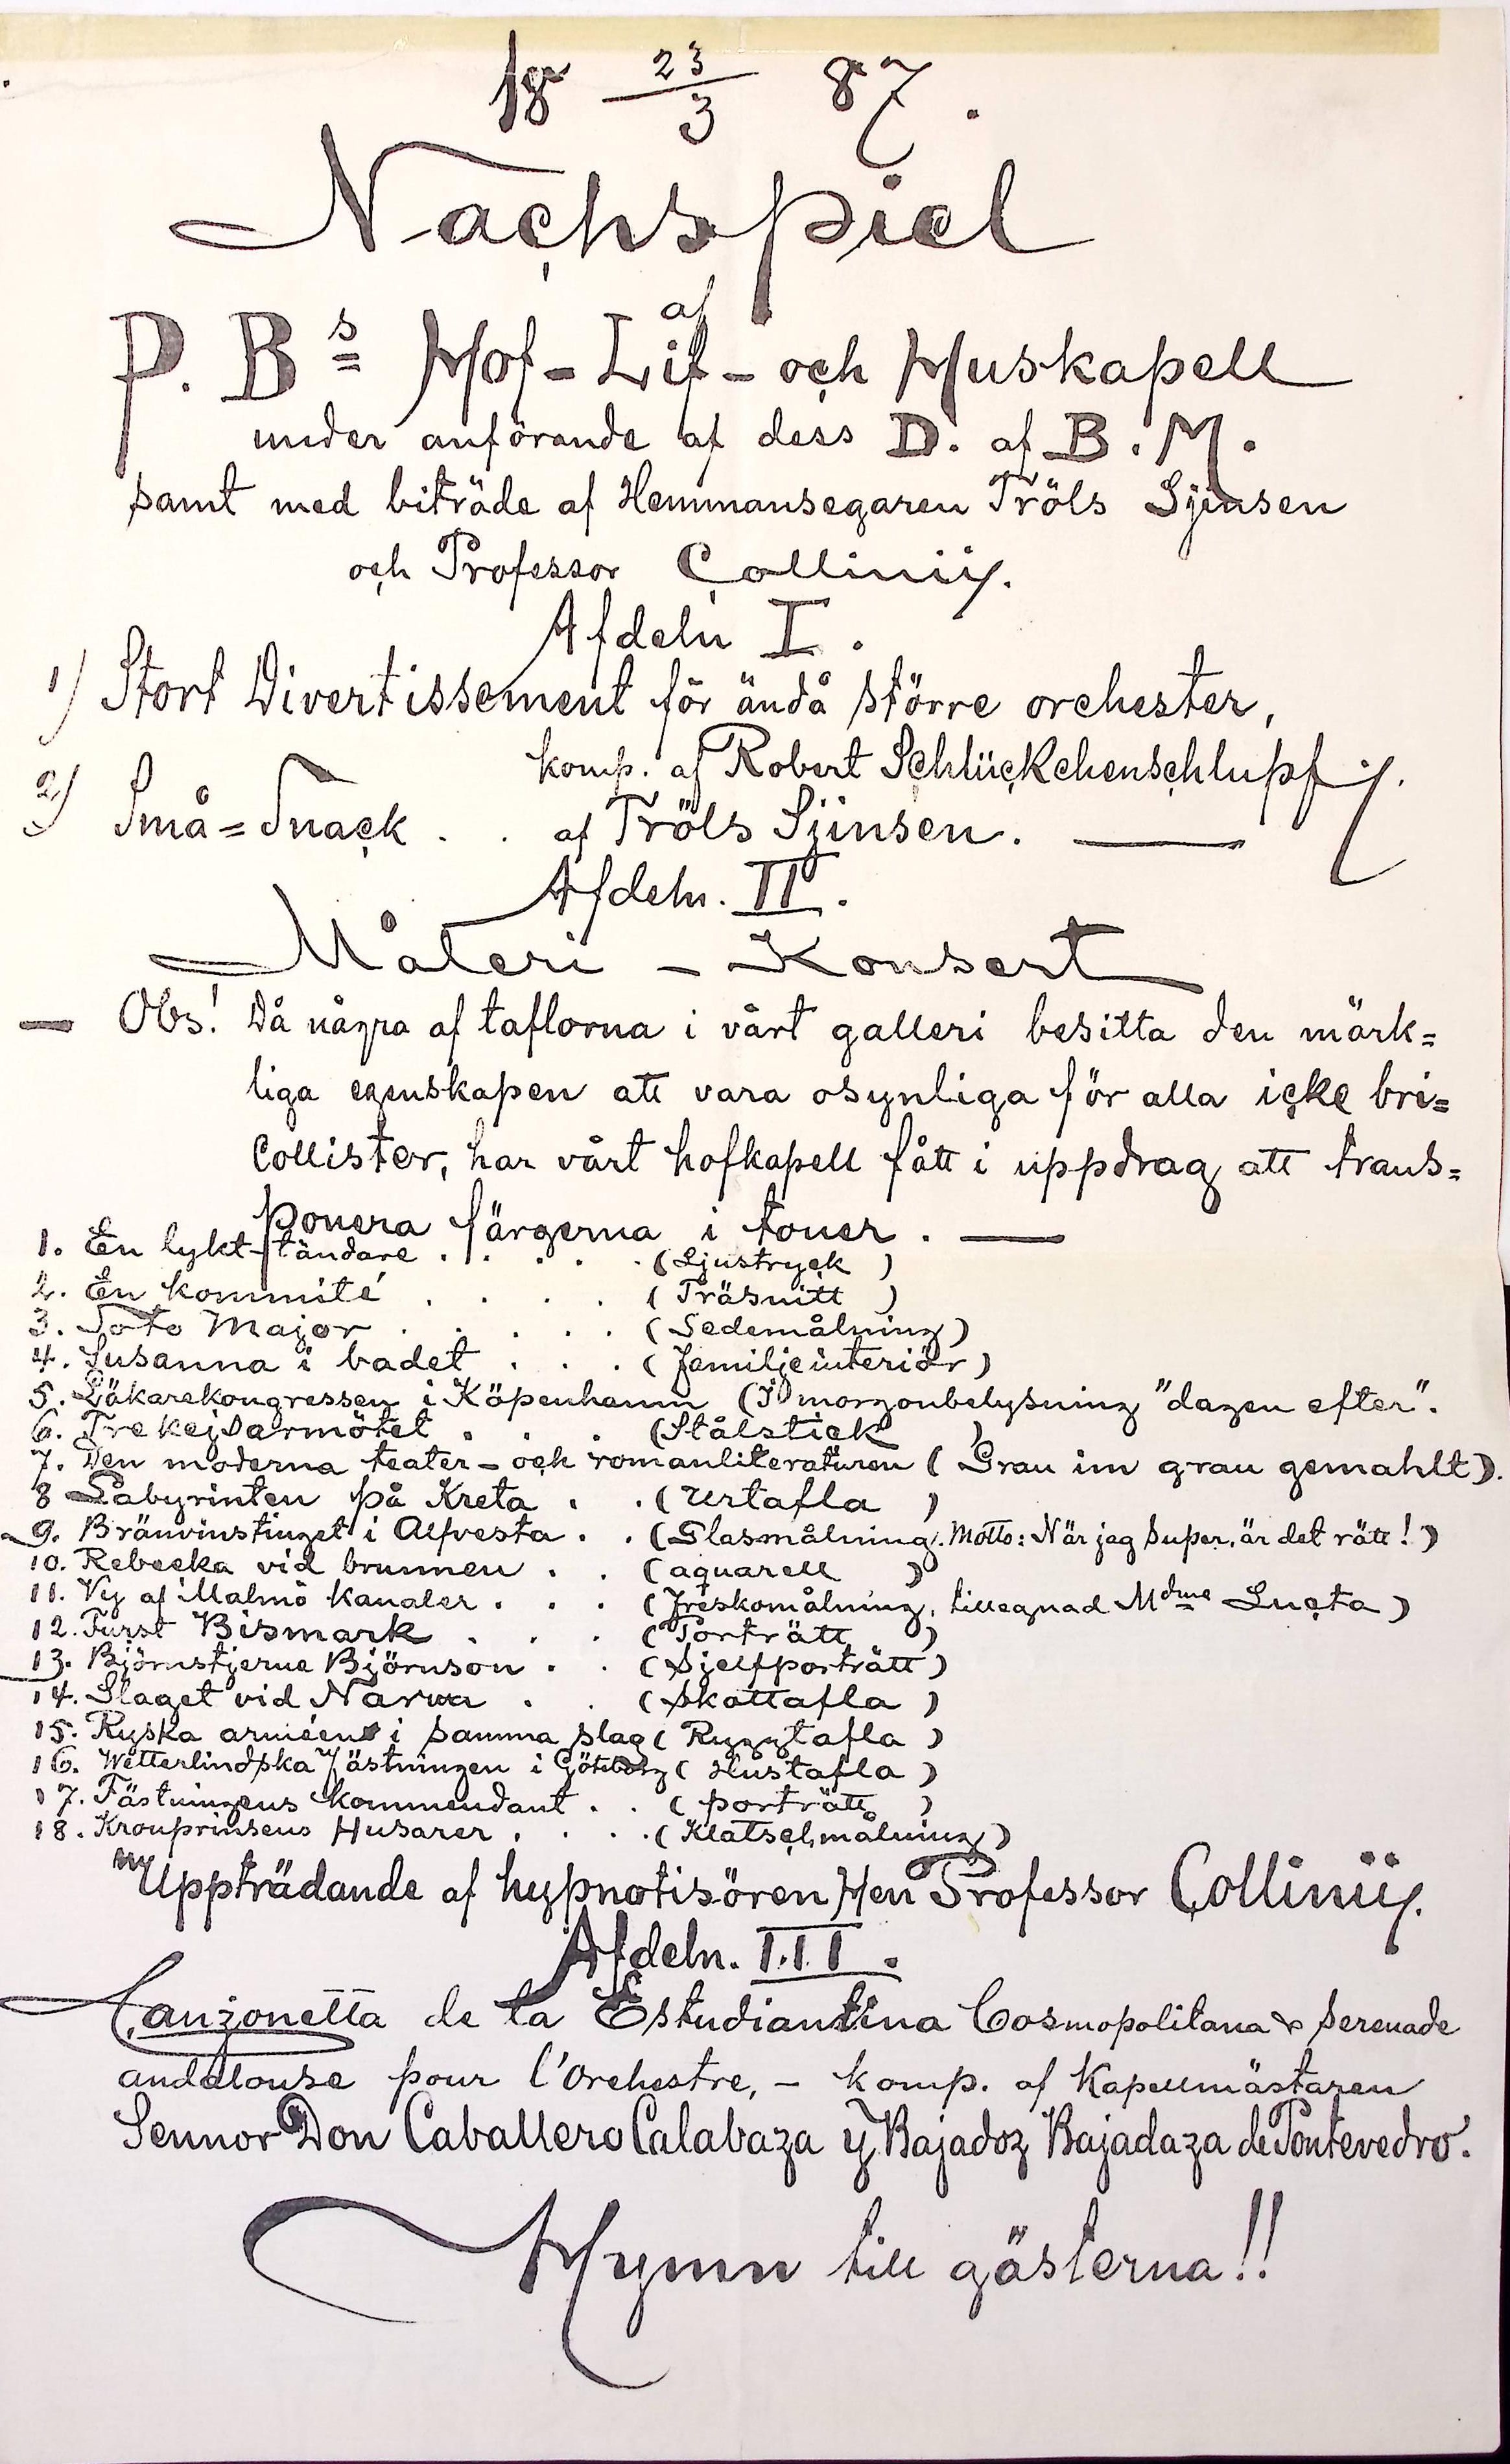 18 23/3 87.
Nachspiel
af
P. Bs Hof-Lif- och Huskapell
under anförande af dess D. af B. M.
samt med biträde af Hemmansegaren Tröls Sjensen
och Professor Colliniij.
Afdeln I.
1) Stort Divertissement för ändå större orchester,
komp. af Robert Schlückchenschlupf y.
2) Små=Snack . . af Tröls Sjinsen. —
Afdeln. II.
Måleri - Konsert
— Obs! Då några af taflorna i vårt galleri besitta den märk=
liga egenskapen att vara osynliga för alla icke bri=
Collister, har vårt hofkapell fått i uppdrag att trans=
ponera färgerna i toner. —
1. En lykt-tändare . . . . . (Ljustryck)
2. En kommité . . . . (Träsnitt)
3. Soto Major . . . . . (Sedemålning)
4. Susanna i badet . . . (Familjeinteriör)
5. Läkarekongressen i Köpenhamn (I morgonbelysning "dagen efter".
6. Trekejsarmötet . . . (Stålstick)
7. Den moderna teater- och romanliteraturen (Grau im grau gemahlt).
8 Labyrinten på Kreta . . (Urtafla)
9. Bränvinstinget i Alfvesta . . (Glasmålning. Motto: När jag super, är det rätt!)
10. Rebecka vid brunnen . . (aquarell)
11. Vy af Malmö kanaler . . . (Freskomålning, tillegnad Mdme Lucta)
12. Furst Bismark . . . (Porträtt)
13. Björnstjerne Björnson . . (Sjelfporträtt)
14. Slaget vid Narva . . (Skottafla)
15. Ryska arméen i samma slag (Ryggtafla)
16. Wetterlindska Fästningen i Göteborg (Hustafla)
17. Fästningens kommendant . . (porträtt)
18. Kronprinsens Husarer . . . . (Klatschmålning)
Uppträdande af hypnotisören Herr Professor Colliniij.
Afdeln. III.
Canzonetta de la Estudiantina Cosmopolitana & serenade
andalouse pour l'Orchestre, - komp. af Kapellmästaren
Sennor Don Caballero Calabaza y Bajadoz Bajadaza de Pontevedro.
Hymn till gästerna!!